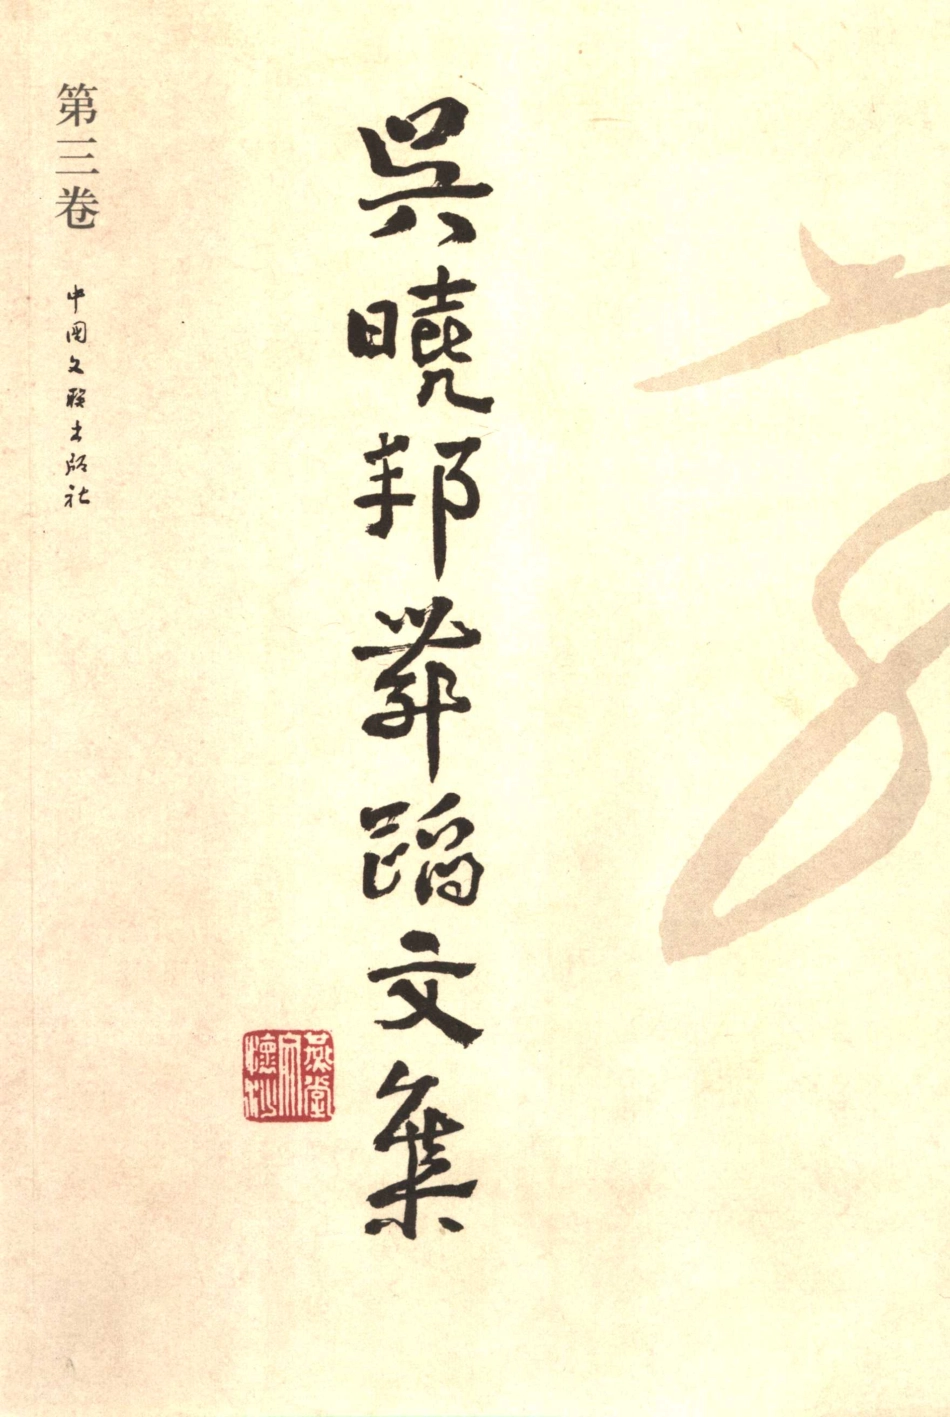 吳曉邦舞蹈文集
第三卷
中国文联出版社